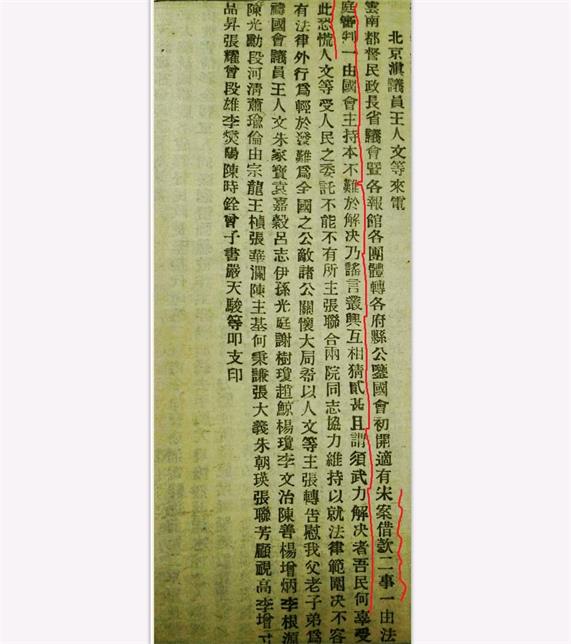 北京滇議員王人文等來電
雲南都督民政長省議會暨各報館各團體轉各府縣公鑒國會初開適有宋案借款二事一由法
庭審判一由國會主持本不難於解决乃謠言叢興互相猜貳甚且謂須武力解决者吾民何辜受
此恐慌人文等受人民之委託不能不有所主張聯合兩院同志協力維持以就法律範圍决不容
有法律外行爲輕於發難爲全國之公敵諸公關懷大局希以人文等主張轉告慰我父老子弟爲
禱國會議員王人文朱家寶袁嘉穀呂志伊孫光庭謝樹瓊趙鯨楊瓊李文治陳善楊增炳李根源
陳光勳段河清蕭瑜倫由宗龍王楨張華瀾陳主基何秉謙張大義朱朝瑛張聯芳顧視高李增
品昇張耀曾段雄李爕陽陳時銓曾子書嚴天駿等叩支印